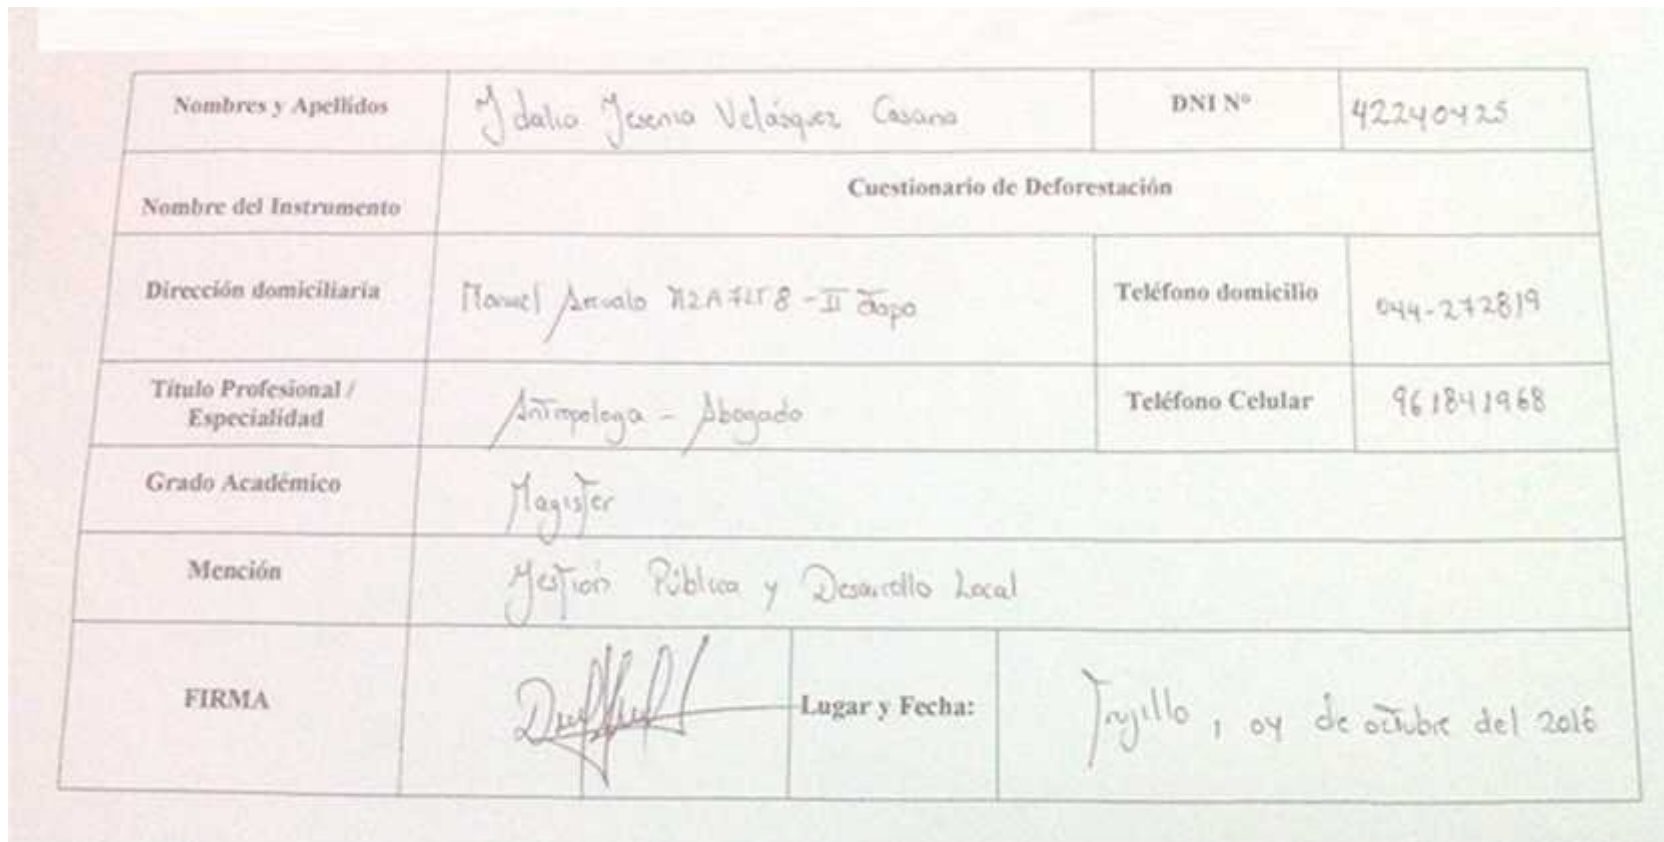 Nombres y Apellidos Ydalia Jesenia Velásquez Casana DNI Nº 42240425
Nombre del Instrumento Cuestionario de Deforestación
Dirección domiciliaria Manuel Arevalo II Teléfono domicilio 044-272819
Título Profesional /
Especialidad Antropologa - Abogado Teléfono Celular 961841968
Grado Académico Magister
Mención Gestión Pública y Desarrollo Local
FIRMA Lugar y Fecha: Trujillo, 04 de octubre del 2016